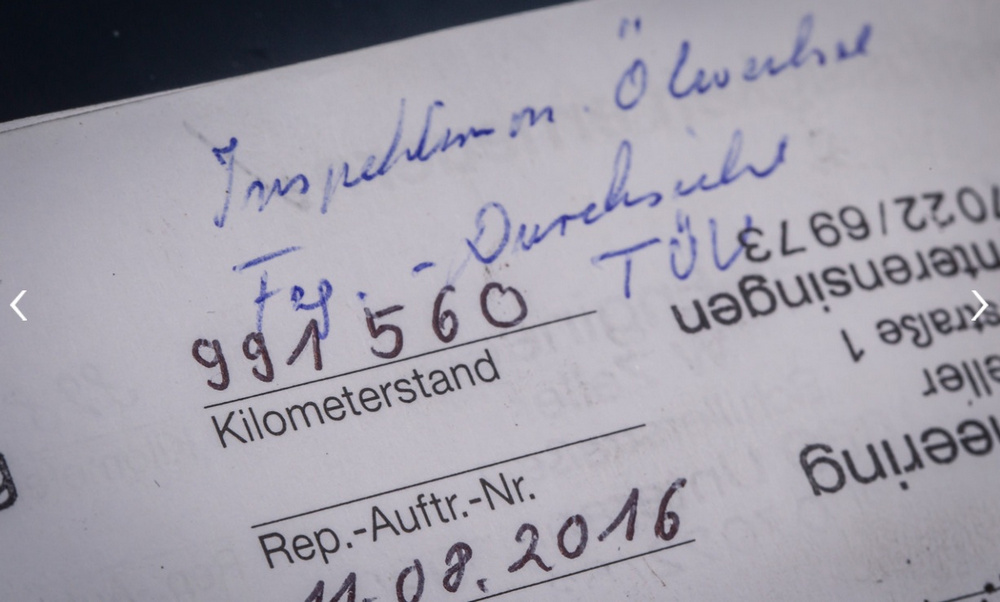 Inspektion Ölwechsel
Fzg. - Durchsicht
TÜV
991 560
Kilometerstand
Rep.-Auftr.-Nr.
11.08.2016
7022/6973
nterensingen
straße 1
eller
eering